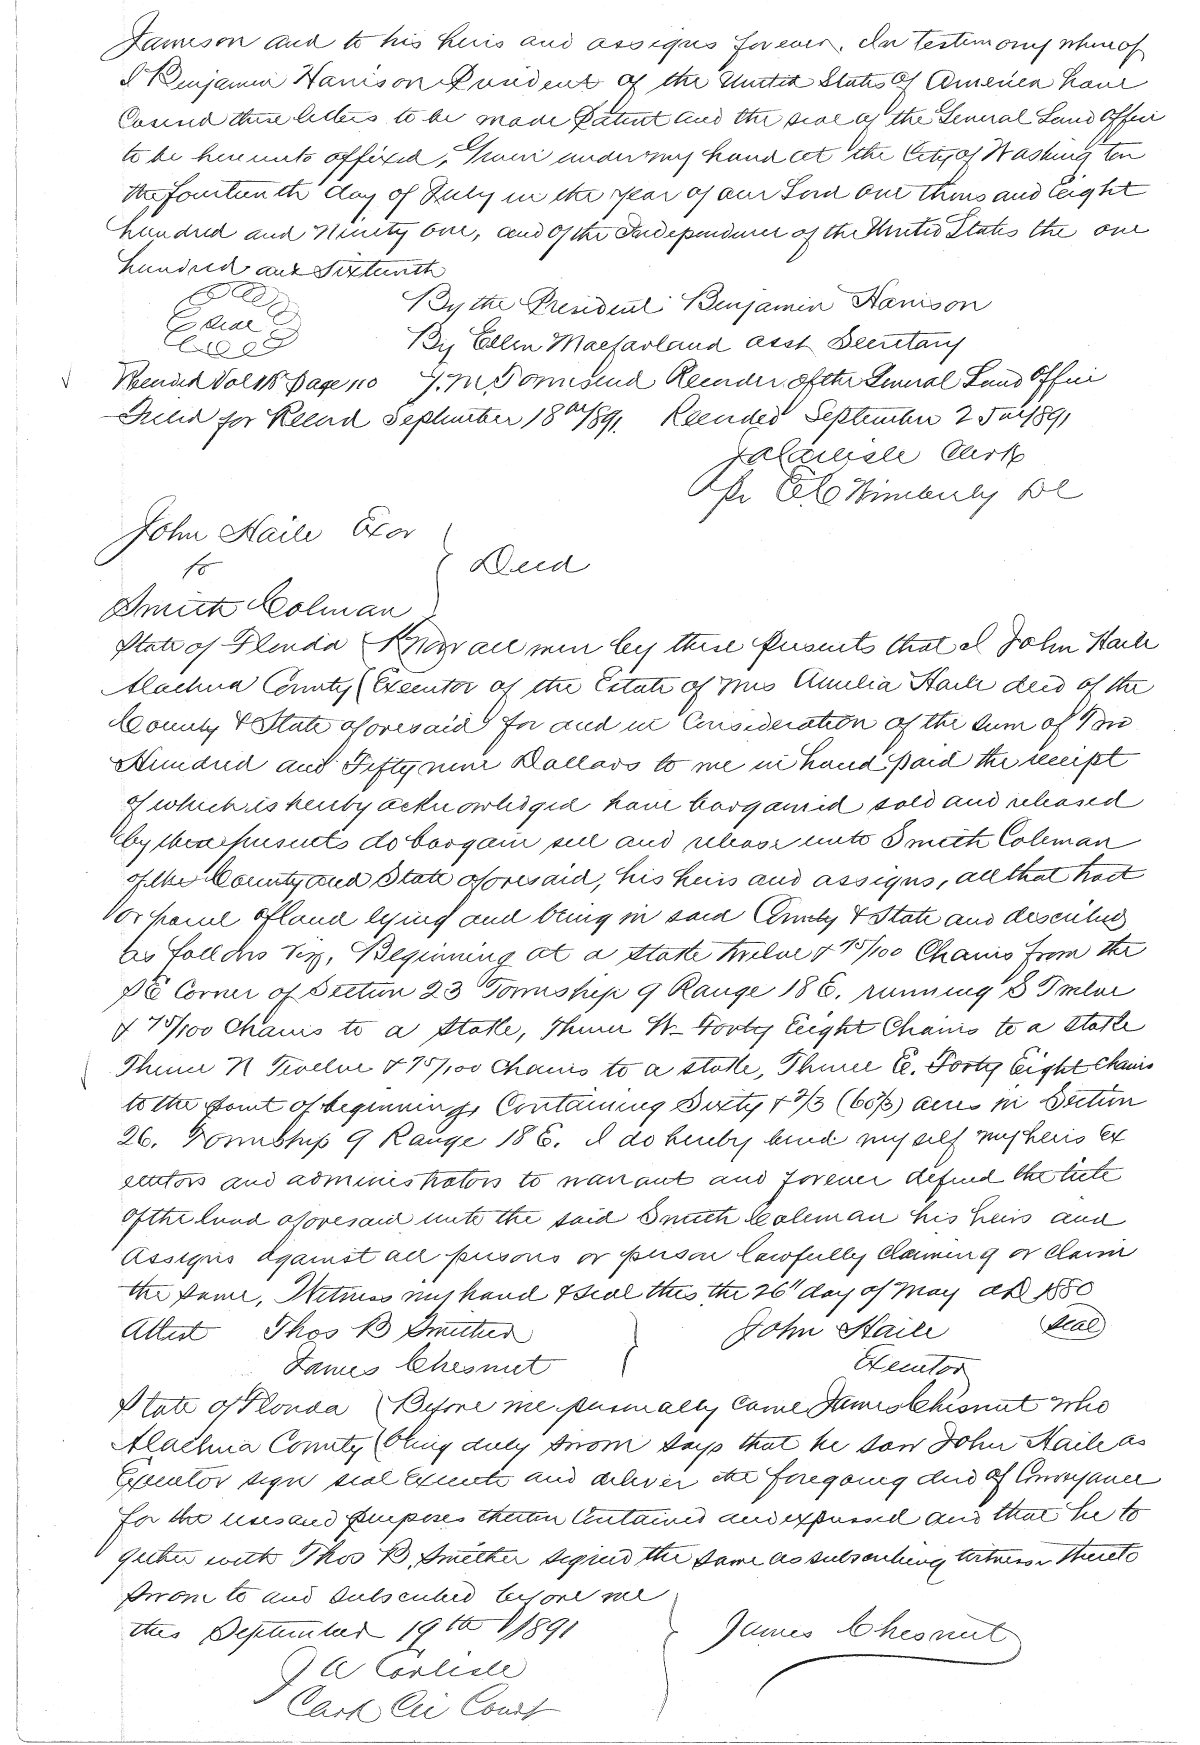 Jameson and to his heirs and assigns forever. In testimony whereof
I Benjamin Harrison President of the United States of America have
Caused these letters to be made Patent and the seal of the General Land Office
to be hereunto affixed, Given under my hand at the City of Washington
the fourteenth day of July in the year of our Lord one thousand Eight
hundred and Ninety one, and of the Independence of the United States the one
hundred and Sixteenth
By the President Benjamin Harrison
Seal
By Ellen Macfarland asst Secretary
Recorded Vol 18 Page 110 J. M. Townsend Recorder of the General Land Office
Filed for Record September 18th 1891. Recorded September 25th 1891
J A Carlisle Clerk
Pr E C Wimberly DC
John Haile Exor
to
Deed
Smith Colman
State of Florida ( Know all men by these presents that I John Haile
Alachua County ( Executor of the Estate of Mrs Amelia Haile decd of the
County & State aforesaid for and in Consideration of the sum of Two
Hundred and Fifty nine Dollars to me in hand paid the receipt
of which is hereby acknowledged have bargained sold and released
by these presents do bargain sell and release unto Smith Coleman
of the County and State aforesaid, his heirs and assigns, all that tract
or parcel of land lying and being in said County & State and described
as follows viz, Beginning at a stake twelve & 75/100 Chains from the
SE Corner of Section 23 Township 9 Range 18 E. running S Twelve
& 75/100 Chains to a stake, Thence W- Forty Eight Chains to a stake
Thence N Twelve & 75/100 Chains to a stake, Thence E. Forty Eight Chains
to the point of beginning, Containing Sixty & 2/3 (60 2/3) acres in Section
26. Township 9 Range 18 E. I do hereby bind my self my heirs Ex
ecutors and administrators to warrant and forever defend the title
of the land aforesaid unto the said Smith Coleman his heirs and
Assigns against all persons or person lawfully claiming or claim
the same, Witness my hand & seal this the 26" day of May AD 1880
Attest Thos B Smither John Haile Seal
James Chesnut Executor
State of Florida ( Before me personally came James Chesnut who
Alachua County ( being duly sworn says that he saw John Haile as
Executor sign seal Execute and deliver the foregoing deed of Conveyance
for the uses and purposes therein Contained and expressed and that he to
gether with Thos B. Smither signed the same as subscribing witness thereto
Sworn to and subscribed before me
this September 19th 1891 James Chesnut
J A Carlisle
Clerk Cir Court